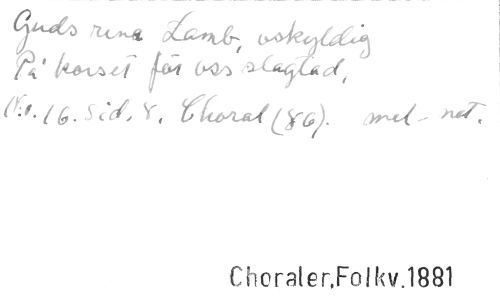 Guds rena Lamb, oskyldig
På korset för oss slagtad,
No. 16. Sid. 8. Choral (86). mel-not.
Choraler,Folkv.1881